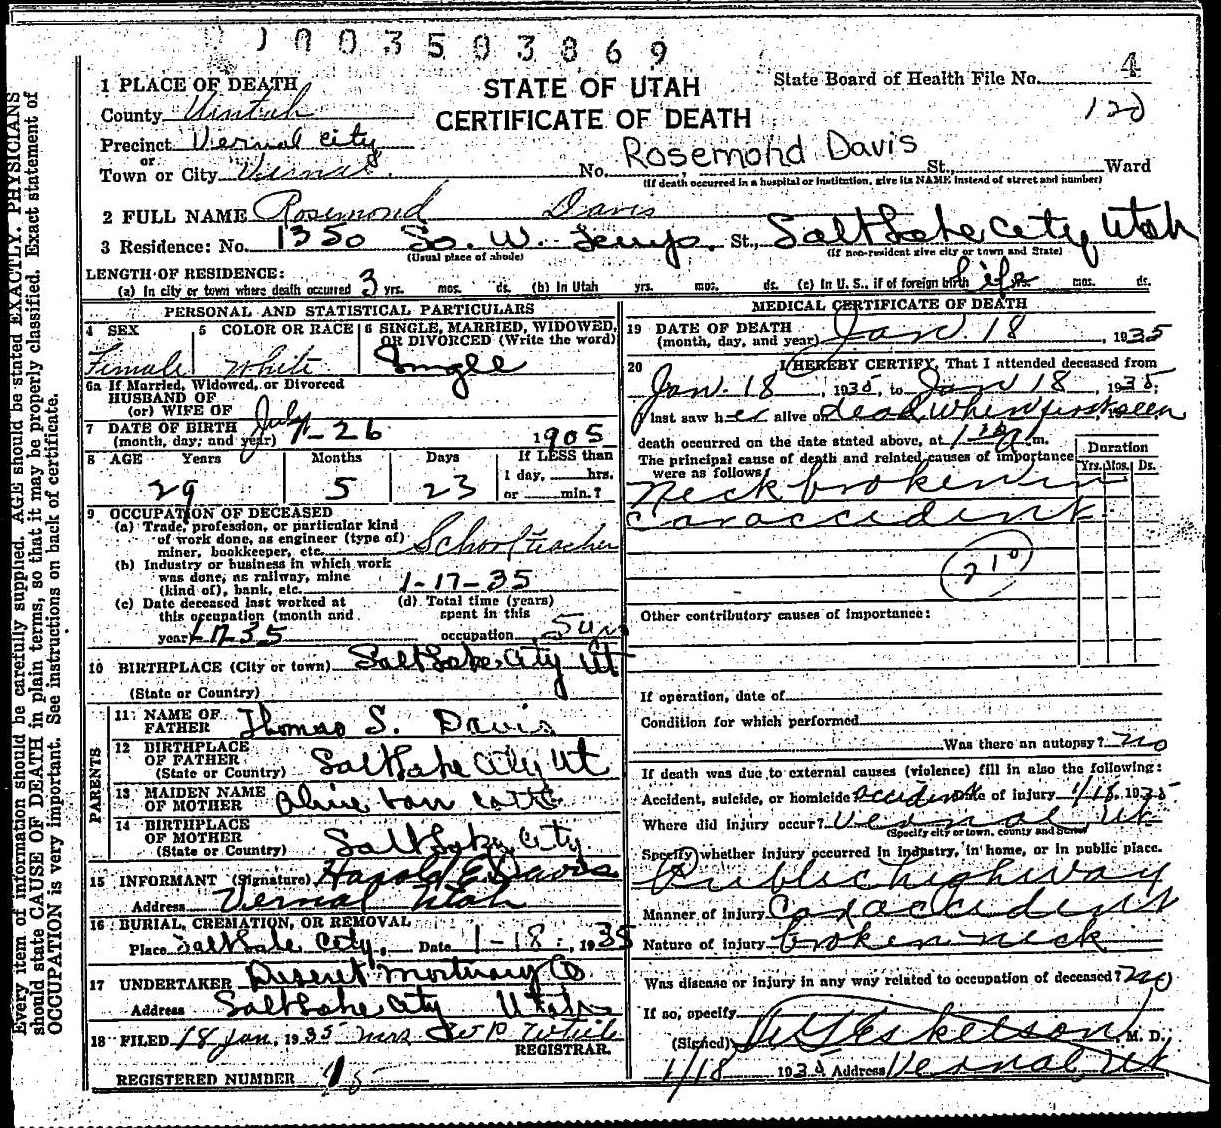 1003503869
STATE OF UTAH
CERTIFICATE OF DEATH
State Board of Health File No. 4
120
1 PLACE OF DEATH
County Uintah
Precinct Vernal City
or
Town or City Vernal
No. Rosemond Davis St., Ward
(If death occurred in a hospital or institution, give its NAME instead of street and number)
2 FULL NAME Rosemond Davis
3 Residence: No. 1350 So. W. Temp. St., Salt Lake City, Utah
(Usual place of abode) (If non-resident give city or town and State)
LENGTH OF RESIDENCE:
(a) In city or town where death occurred 3 yrs. mos. ds. (b) In Utah yrs. mos. ds. (c) In U. S., if of foreign birth life mos. ds.
PERSONAL AND STATISTICAL PARTICULARS
4 SEX Female
5 COLOR OR RACE White
6 SINGLE, MARRIED, WIDOWED, OR DIVORCED (Write the word) Single
6a If Married, Widowed, or Divorced
HUSBAND OF
(or) WIFE OF
7 DATE OF BIRTH
(month, day, and year) July 26 1905
8 AGE Years Months Days If LESS than
1 day, hrs.
29 5 23 or min.?
9 OCCUPATION OF DECEASED
(a) Trade, profession, or particular kind
of work done, as engineer (type of)
miner, bookkeeper, etc. School teacher
(b) Industry or business in which work
was done, as railway, mine
(kind of), bank, etc. 1-17-35
(c) Date deceased last worked at
this occupation (month and
year) 1-17-35
(d) Total time (years)
spent in this
occupation 5 yrs
10 BIRTHPLACE (City or town) Salt Lake City Ut
(State or Country)
PARENTS
11 NAME OF
FATHER Thomas S. Davis
12 BIRTHPLACE
OF FATHER
(State or Country) Salt Lake City Ut
13 MAIDEN NAME
OF MOTHER Olive Van Cott
14 BIRTHPLACE
OF MOTHER
(State or Country) Salt Lake City
15 INFORMANT (Signature) Harold E. Davis
Address Vernal Utah
16 BURIAL, CREMATION, OR REMOVAL
Place Salt Lake City, Date 1-18, 1935
17 UNDERTAKER Deseret Mortuary Co
Address Salt Lake City Utah
18 FILED 18 Jan, 1935 Mrs
REGISTRAR.
REGISTERED NUMBER 15
MEDICAL CERTIFICATE OF DEATH
19 DATE OF DEATH
(month, day, and year) Jan. 18, 1935
20 I HEREBY CERTIFY, That I attended deceased from
Jan. 18, 1935, to Jan 18, 1935;
I last saw her alive on dead when first seen
death occurred on the date stated above, at m.
The principal cause of death and related causes of importance
were as follows:
Duration
Yrs. Mos. Ds.
Neck broken in
car accident
210
Other contributory causes of importance:
If operation, date of
Condition for which performed
Was there an autopsy? no
If death was due to external causes (violence) fill in also the following:
Accident, suicide, or homicide accident Date of injury 1/18, 1935
Where did injury occur? Vernal, Ut
(Specify city or town, county and State)
Specify whether injury occurred in industry, in home, or in public place.
Public highway
Manner of injury Car accident
Nature of injury broken neck
Was disease or injury in any way related to occupation of deceased? no
If so, specify
(Signed) Eskelson, M. D.
1/18 1935 Address Vernal, Ut
Every item of information should be carefully supplied. AGE should be stated EXACTLY. PHYSICIANS
should state CAUSE OF DEATH in plain terms, so that it may be properly classified. Exact statement of
OCCUPATION is very important. See instructions on back of certificate.